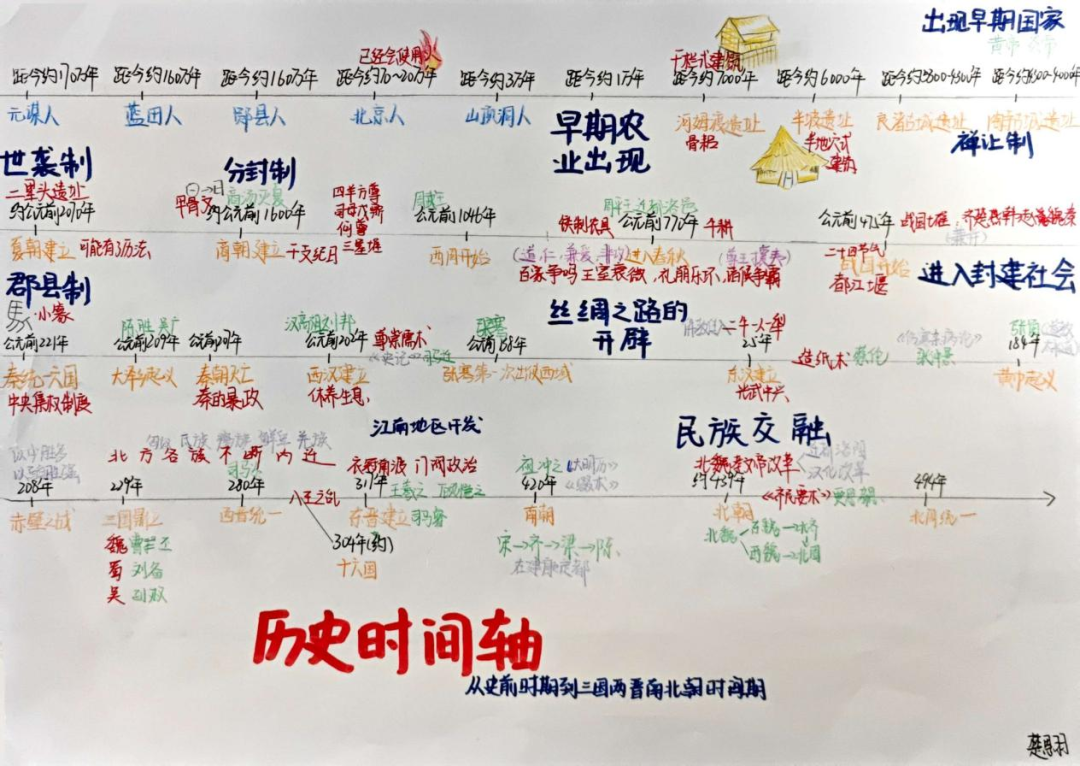 出现早期国家
已经会使用火
干栏式建筑
距今约170万年 距今约160万年 距今约160万年 距今约70~20万年 距今约3万年 距今约1万年 距今约7000年 距今约6000年
元谋人 蓝田人 郧县人 北京人 山顶洞人 早期农业出现 河姆渡遗址 半坡遗址 良渚古城遗址 陶寺古城遗址
骨耜 半地穴式建筑 禅让制
世袭制 分封制
二里头遗址 甲骨文 商汤灭夏 四羊方尊 周武王
约公元前2070年 约公元前1600年 公元前1046年 铁制农具 公元前770年 牛耕 公元前475年 战国七雄
夏朝建立 可能有历法 商朝建立 干支纪日 三星堆 西周开始 进入春秋 二十四节气 战国开始
百家争鸣 王室衰微,礼崩乐坏,诸侯争霸 都江堰 进入封建社会
郡县制 丝绸之路的开辟
小篆 陈胜 吴广 汉高祖刘邦 尊崇儒术 张骞 张角
公元前221年 公元前209年 公元前138年 25年 造纸术 蔡伦 184年
《史记》 司马迁 张仲景
秦统一六国 秦朝灭亡 西汉建立 张骞第一次出使西域 东汉建立 黄巾起义
中央集权制度 秦的暴政 休养生息 光武中兴
江南地区开发 民族交融
以少胜多
北方各族不断内迁 衣冠南渡 门阀政治 祖冲之 《大明历》 北魏孝文帝改革 汉化改革
208年 229年 280年 八王之乱 王羲之 顾恺之 420年 约439年 《齐民要术》 贾思勰
赤壁之战 三国鼎立 西晋统一 东晋建立 司马睿 南朝 北朝
魏 曹丕 304年(约) 宋→齐→梁→陈 北魏 东魏→北齐
蜀 刘备 十六国 在建康定都 西魏→北周
吴 孙权
历史时间轴
从史前时期到三国两晋南北朝时间期